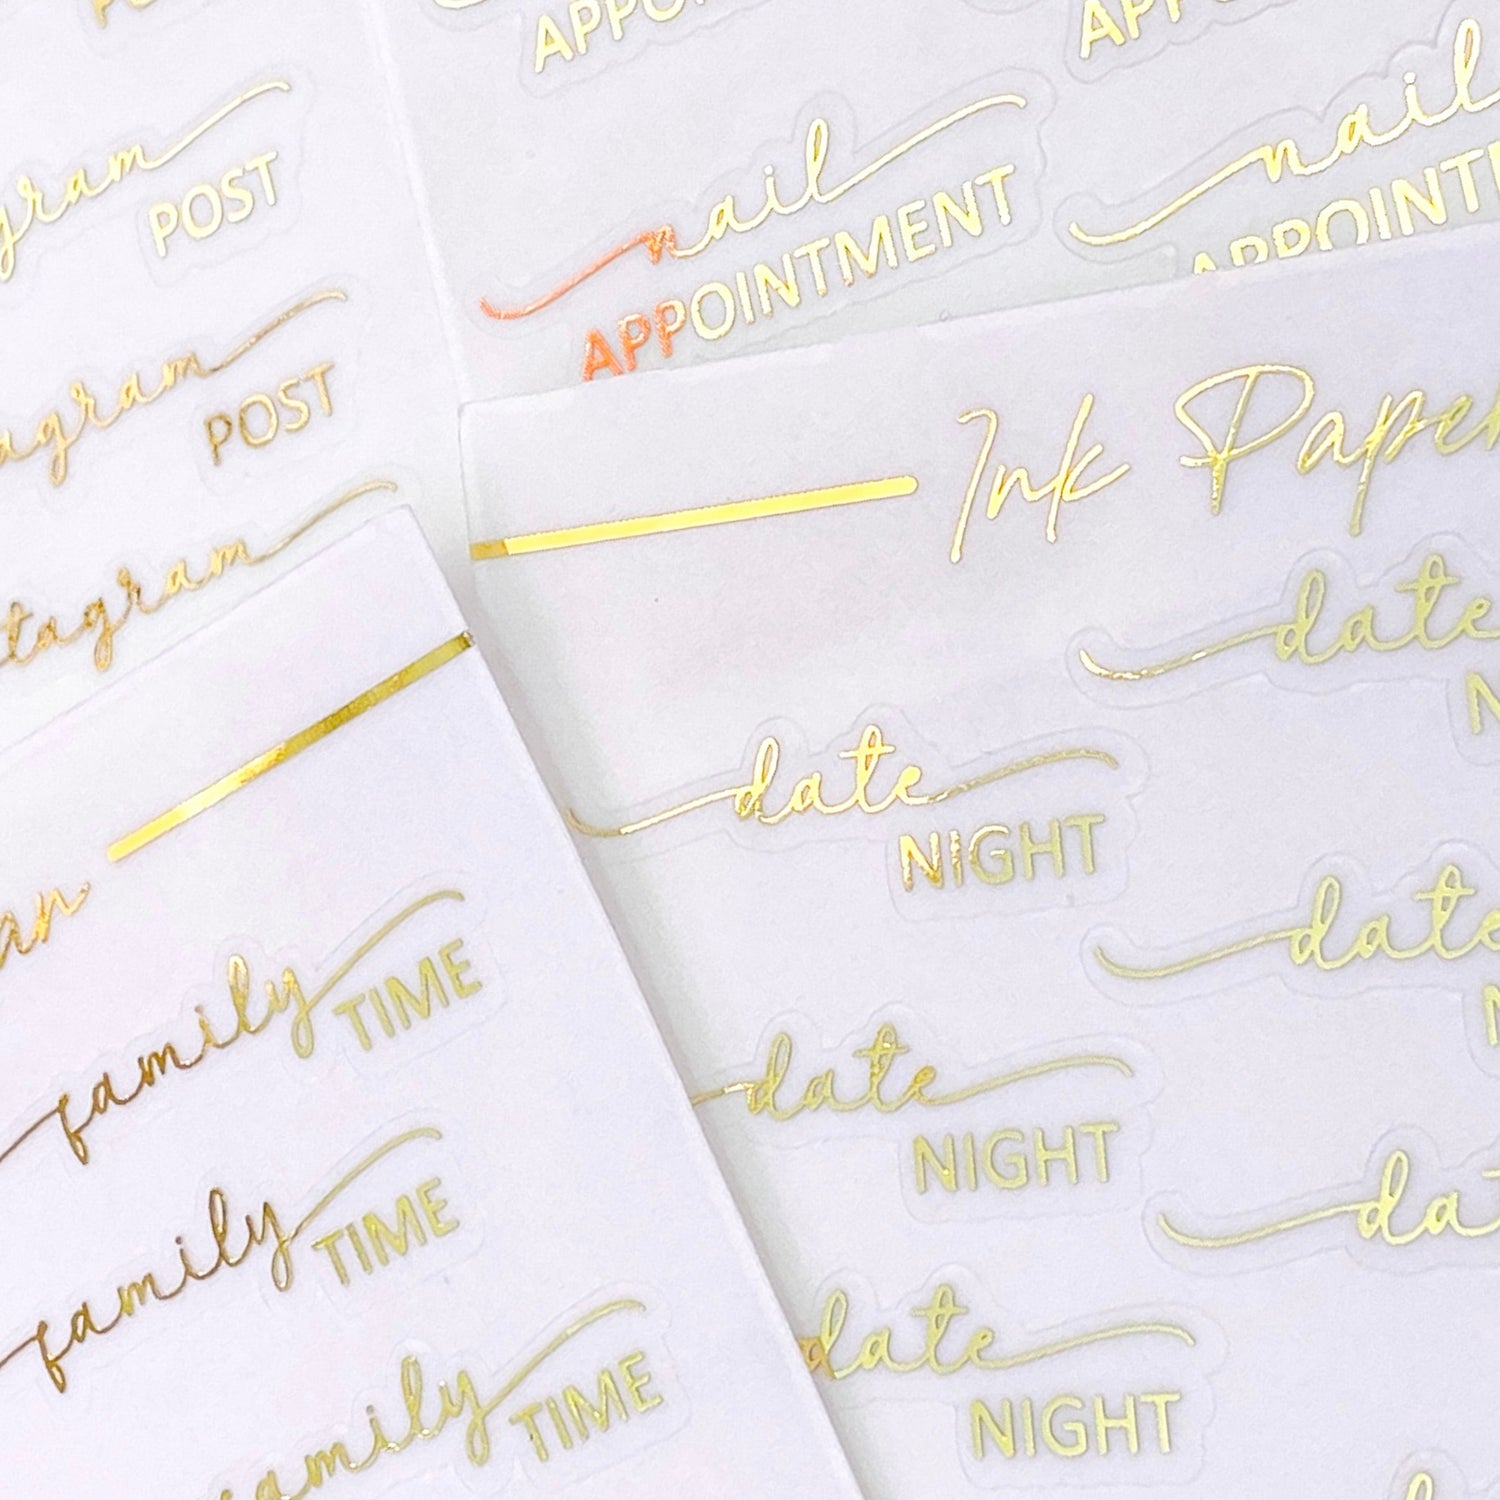 POST
gram
POST
agram
POST
tagram
APPO
APPO
nail
APPOINTMENT
nail
APPOINT
Ink Paper
date
NIGHT
date
N
date
NIGHT
date
N
date
NIGHT
dat
an
family
TIME
family
TIME
family
TIME